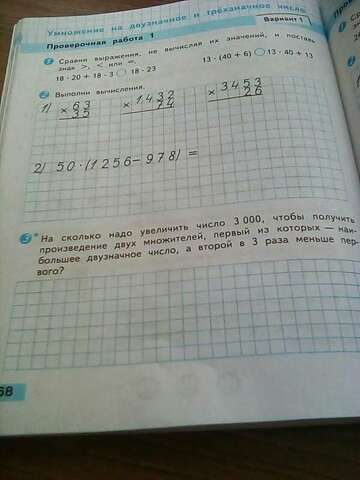 Умножение на двузначное и трёхзначное число
Проверочная работа 1
Вариант 1
1 Сравни выражения, не вычисляя их значений, и поставь
знак >, < или =.
18 · 20 + 18 · 3 ◯ 18 · 23
13 · (40 + 6) ◯ 13 · 40 + 13
2 Выполни вычисления.
1) × 63
35
× 1432
74
× 3453
26
2) 50·(1256−978) =
3* На сколько надо увеличить число 3 000, чтобы получить
произведение двух множителей, первый из которых — наи-
большее двузначное число, а второй в 3 раза меньше пер-
вого?
68